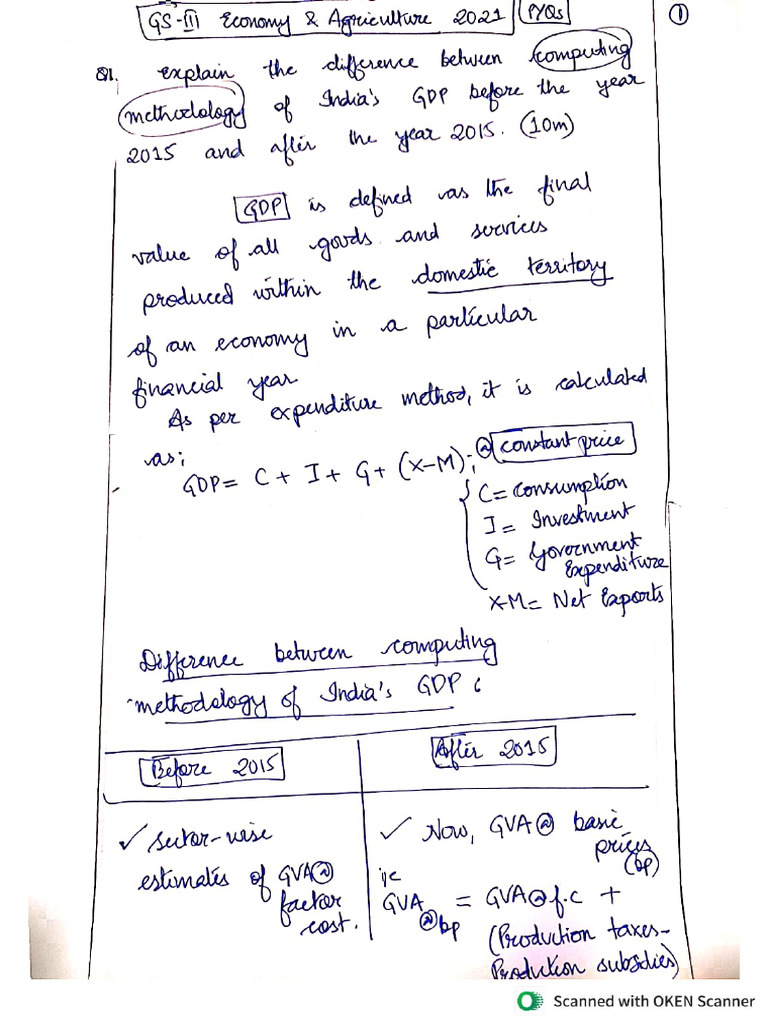 GS-III Economy & Agriculture 2021 PYQs
1
Q1. explain the difference between computing
methodology of India's GDP before the year
2015 and after the year 2015. (10m)
GDP is defined as the final
value of all goods and services
produced within the domestic territory
of an economy in a particular
financial year
As per expenditure method, it is calculated
as;
GDP = C + I + G + (X-M); @ constant price
C = Consumption
I = Investment
G = Government
Expenditure
X-M = Net Exports
Difference between computing
methodology of India's GDP :
Before 2015
After 2015
✓ Sector-wise
estimates of GVA@
factor
cost.
✓ Now, GVA@ basic
prices
(bp)
i.e
GVA@bp = GVA@f.c +
(Production taxes-
Production subsdies)
Scanned with OKEN Scanner